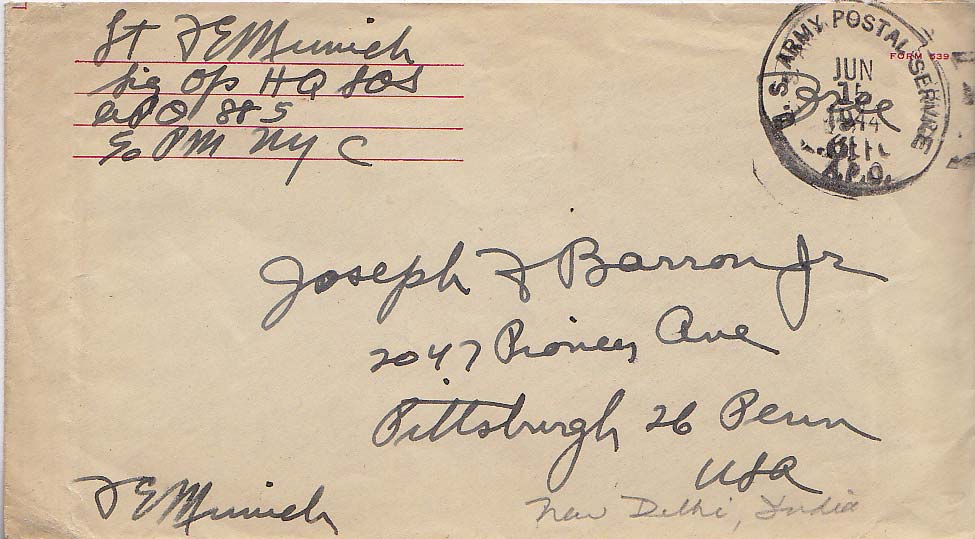 Lt F E Munich
Sig Ops HQ SOS
APO 885
c/o PM NYC
U.S. ARMY POSTAL SERVICE
JUN
15
1944
A.P.O.
Free
FORM 539
Joseph F Barron Jr
2047 Pioneer Ave
Pittsburgh 26 Penn
USA
F E Munich
New Delhi, India